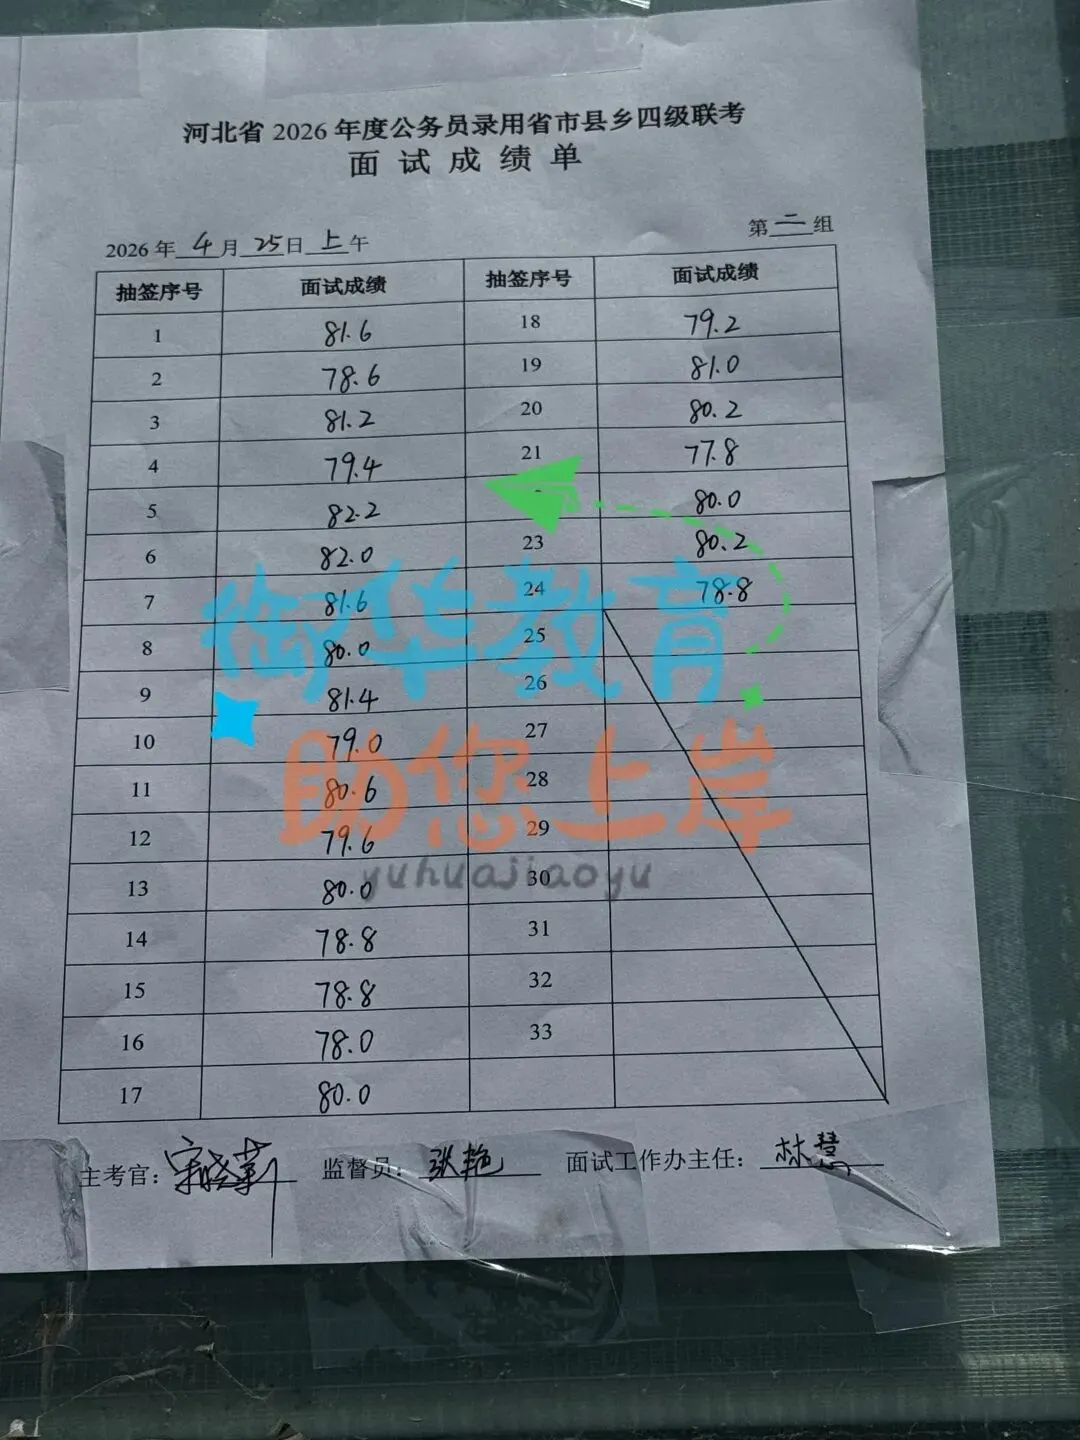 河北省 2026 年度公务员录用省市县乡四级联考
面试成绩单
2026 年 4 月 25 日 上 午
第 二 组
抽签序号 面试成绩 抽签序号 面试成绩
1 81.6 18 79.2
2 78.6 19 81.0
3 81.2 20 80.2
4 79.4 21 77.8
5 82.2 80.0
6 82.0 23 80.2
7 81.6 24 78.8
8 80.0 25
9 81.4 26
10 79.0 27
11 80.6 28
12 79.6 29
13 80.0 30
14 78.8 31
15 78.8 32
16 78.0 33
17 80.0
御华教育
助您上岸
yuhuajiaoyu
主考官: 监督员: 张艳 面试工作办主任: 林慧